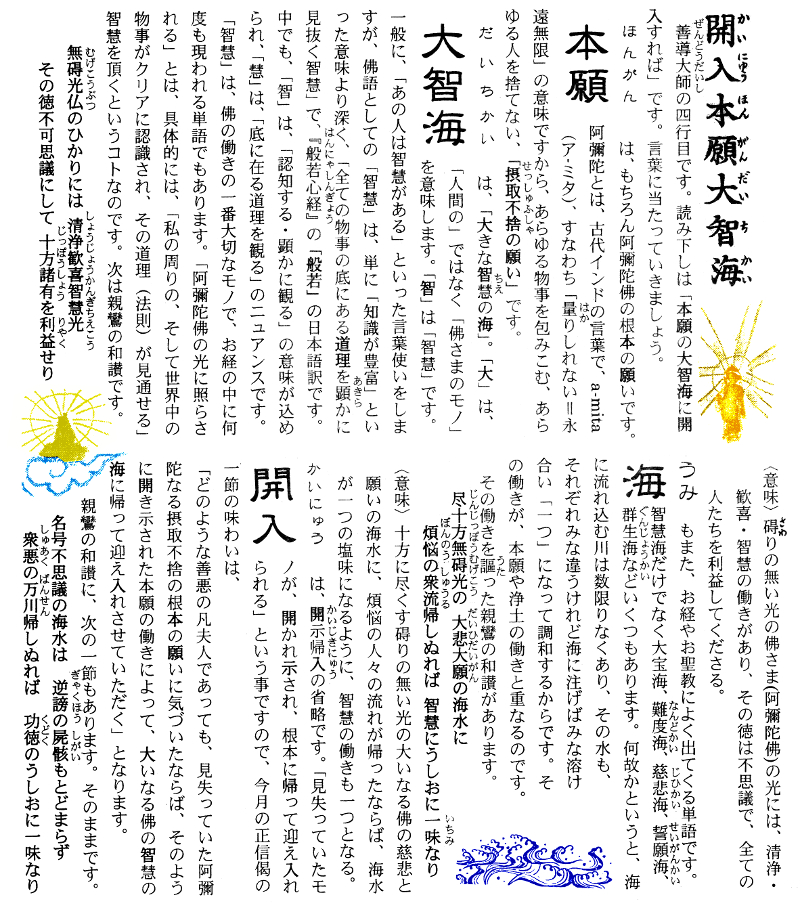 開入本願大智海
かいにゅうほんがんだいちかい
善導大師の四行目です。読み下しは「本願の大智海に開
ぜんどうだいし
入すれば」です。言葉に当たっていきましょう。
ほんがん
本願
は、もちろん阿彌陀佛の根本の願いです。
阿彌陀とは、古代インドの言葉で、a-mita
(ア-ミタ)、すなわち「量りしれない＝永
はか
遠無限」の意味ですから、あらゆる物事を包みこむ、あら
ゆる人を捨てない、「摂取不捨の願い」です。
せっしゅふしゃ
だいちかい
大智海
は、「大きな智慧の海」。「大」は、
ちえ
「人間の」ではなく「佛さまのモノ」
を意味します。「智」は「智慧」です。
一般に、「あの人は智慧がある」といった言葉使いをしま
すが、佛語としての「智慧」は、単に「知識が豊富」とい
った意味より深く、「全ての物事の底にある道理を顕かに
あきら
見抜く智慧」で、『般若心経』の「般若」の日本語訳です。
はんにゃしんぎょう
中でも、「智」は、「認知する・顕かに観る」の意味が込め
られ、「慧」は、「底に在る道理を観る」のニュアンスです。
「智慧」は、佛の働きの一番大切なモノで、お経の中に何
度も現われる単語でもあります。「阿彌陀佛の光に照らさ
れる」とは、具体的には、「私の周りの、そして世界中の
物事がクリアに認識され、その道理（法則）が見通せる」
智慧を頂くというコトなのです。次は親鸞の和讃です。
無碍光仏のひかりには 清浄歓喜智慧光
むげこうぶつ しょうじょうかんぎちえこう
その徳不可思議にして 十方諸有を利益せり
じっぽうしょう りやく
〈意味〉碍りの無い光の佛さま(阿彌陀佛)の光には、清浄・
さわ
歓喜・智慧の働きがあり、その徳は不思議で、全ての
人たちを利益してくださる。
うみ
海
もまた、お経やお聖教によく出てくる単語です。
智慧海だけでなく大宝海、難度海、慈悲海、誓願海、
なんどかい じひかい せいがんかい
群生海などいくつもあります。何故かというと、海
ぐんじょうかい
に流れ込む川は数限りなくあり、その水も、
それぞれみな違うけれど海に注げばみな溶け
合い「一つ」になって調和するからです。そ
の働きが、本願や浄土の働きと重なるのです。
その働きを謳った親鸞の和讃があります。
うた
尽十方無碍光の 大悲大願の海水に
じんじっぽうむげこう だいひだいがん
煩悩の衆流帰しぬれば 智慧にうしおに一味なり
ぼんのうしゅうる いちみ
〈意味〉十方に尽くす碍りの無い光の大いなる佛の慈悲と
願いの海水に、煩悩の人々の流れが帰ったならば、海水
が一つの塩味になるように、智慧の働きも一つとなる。
かいにゅう
開入
は、開示帰入の省略です。「見失っていたモ
かいじきにゅう
ノが、開かれ示され、根本に帰って迎え入れ
られる」という事ですので、今月の正信偈の
一節の味わいは、
「どのような善悪の凡夫人であっても、見失っていた阿彌
陀なる摂取不捨の根本の願いに気づいたならば、そのよう
に開き示された本願の働きによって、大いなる佛の智慧の
海に帰って迎え入れさせていただく」となります。
親鸞の和讃に、次の一節もあります。そのままです。
名号不思議の海水は 逆謗の屍骸もとどまらず
ぎゃくほう しがい
衆悪の万川帰しぬれば 功徳のうしおに一味なり
しゅあく ばんせん くどく